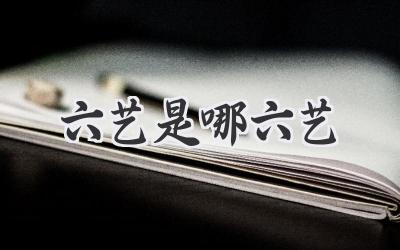 六艺是哪六艺